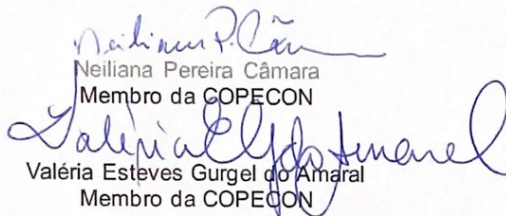 Neiliana P. Câm
Neiliana Pereira Câmara
Membro da COPECON
Valéria E G do Amaral
Valéria Esteves Gurgel do Amaral
Membro da COPECON